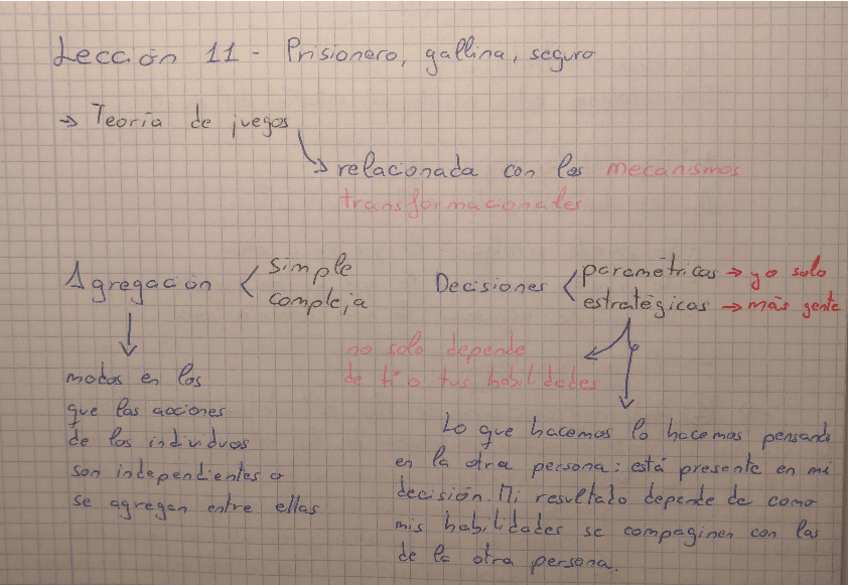 Lección 11 - Prisionero, gallina, seguro
→ Teoría de juegos
→ relacionada con los mecanismos
transformacionales
Agregación < simple
compleja
Decisiones < paramétricas → yo solo
estratégicas → más gente
modos en los
que las acciones
de los individuos
son independientes o
se agregan entre ellas
no solo depende
de ti o tus habilidades
Lo que hacemos lo hacemos pensando
en la otra persona: está presente en mi
decisión. Mi resultado depende de como
mis habilidades se compaginen con las
de la otra persona.